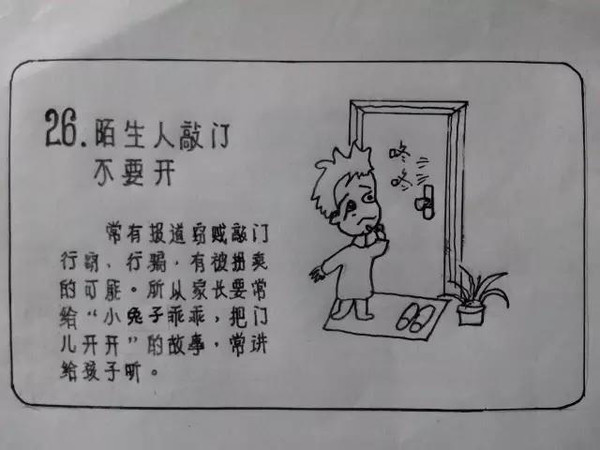 26.陌生人敲门
不要开
咚
咚
常有报道窃贼敲门
行窃、行骗,有被拐卖
的可能。所以家长要常
给“小兔子乖乖,把门
儿开开”的故事,常讲
给孩子听。